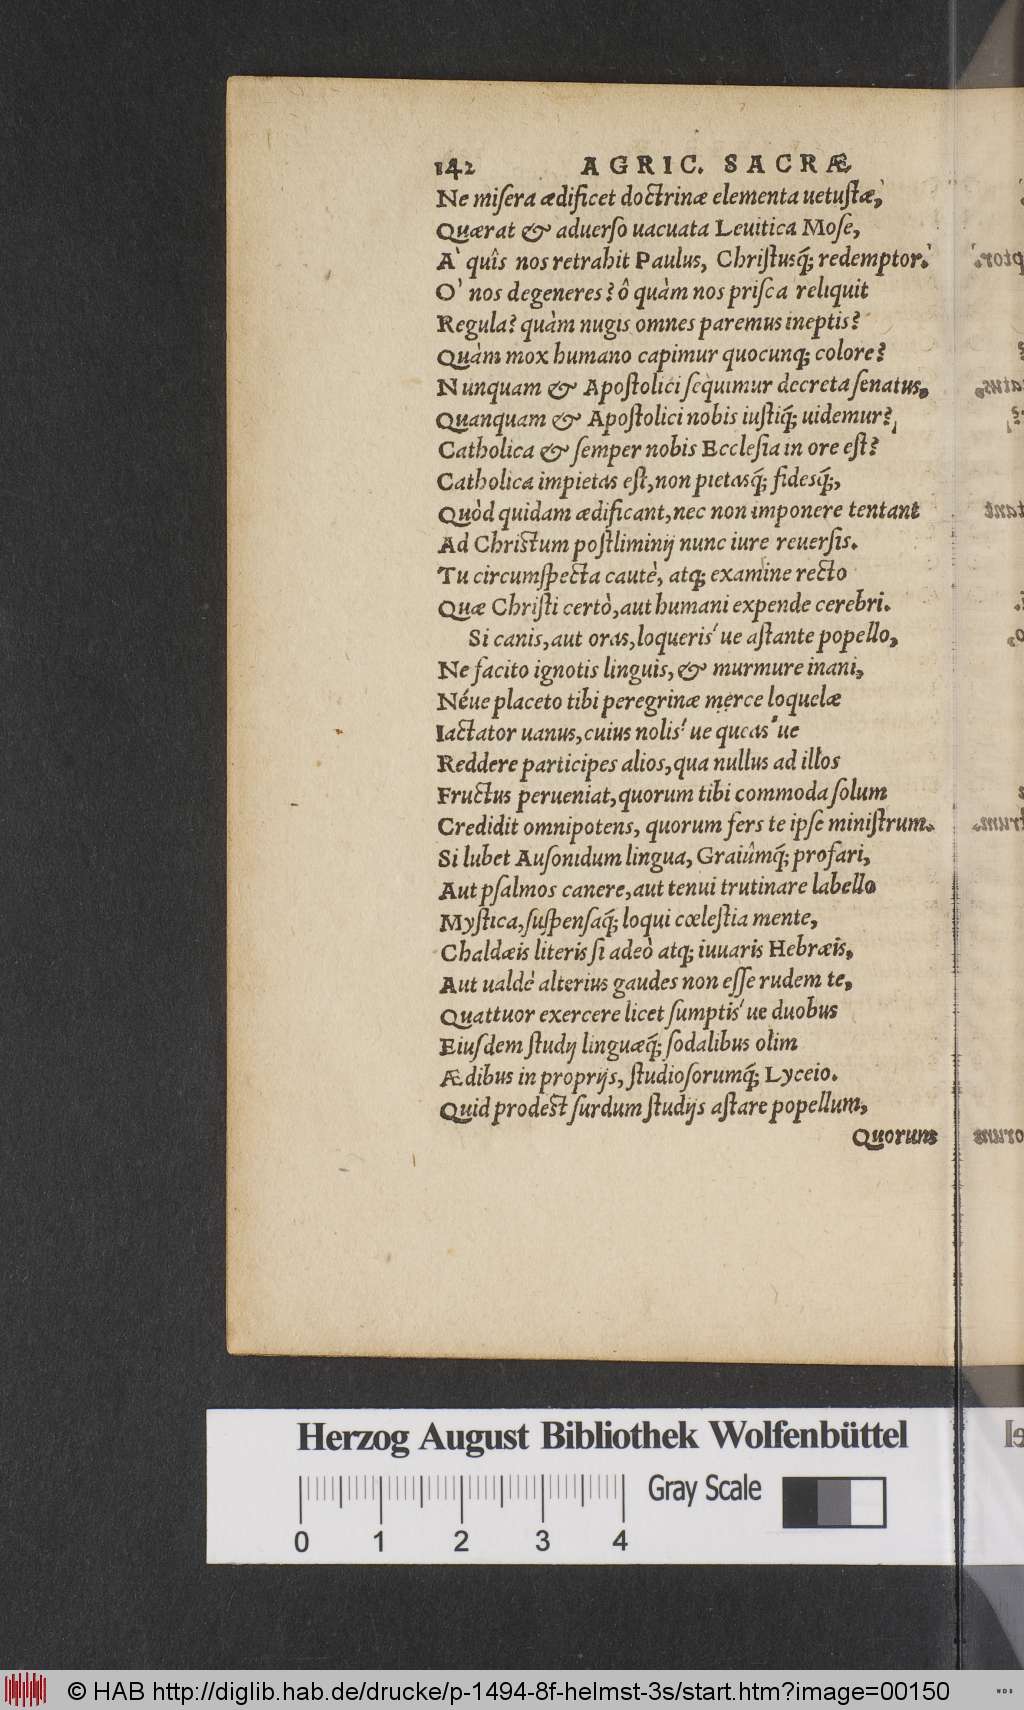 142 AGRIC. SACRÆ
Ne miſera ædificet doctrinæ elementa uetuſtæ,
Quærat & aduerſo uacuata Leuitica Moſe,
A` quîs nos retrahit Paulus, Chriſtusq́; redemptor.
O` nos degeneres? ô quàm nos priſca reliquit
Regula? quàm nugis omnes paremus ineptis?
Quàm mox humano capimur quocunq; colore?
Nunquam & Apoſtolici ſequimur decreta ſenatus,
Quanquam & Apoſtolici nobis iuſtiq́; uidemur?
Catholica & ſemper nobis Eccleſia in ore eſt?
Catholica impietas eſt, non pietasq́; fidesq́;,
Quòd quidam ædificant, nec non imponere tentant
Ad Chriſtum poſtliminij nunc iure reuerſis.
Tu circumſpecta cautè, atq; examine recto
Quæ Chriſti certò, aut humani expende cerebri.
Si canis, aut oras, loqueris' ue aſtante popello,
Ne facito ignotis linguis, & murmure inani,
Néue placeto tibi peregrinæ merce loquelæ
Iactator uanus, cuius nolis' ue queas' ue
Reddere participes alios, qua nullus ad illos
Fructus perueniat, quorum tibi commoda ſolum
Credidit omnipotens, quorum fers te ipſe miniſtrum.
Si lubet Auſonidum lingua, Graiûmq́; profari,
Aut pſalmos canere, aut tenui trutinare labello
Myſtica, ſuſpenſaq́; loqui cœleſtia mente,
Chaldæis literis ſi adeò atq; iuuaris Hebræis,
Aut ualdè alterius gaudes non eſſe rudem te,
Quattuor exercere licet ſumptis' ue duobus
Eiuſdem ſtudij linguæq́; ſodalibus olim
Ædibus in proprijs, ſtudioſorumq́; Lyceio.
Quid prodeſt ſurdum ſtudijs aſtare popellum,
Quorum
Herzog August Bibliothek Wolfenbüttel
Gray Scale
0 1 2 3 4
© HAB http://diglib.hab.de/drucke/p-1494-8f-helmst-3s/start.htm?image=00150